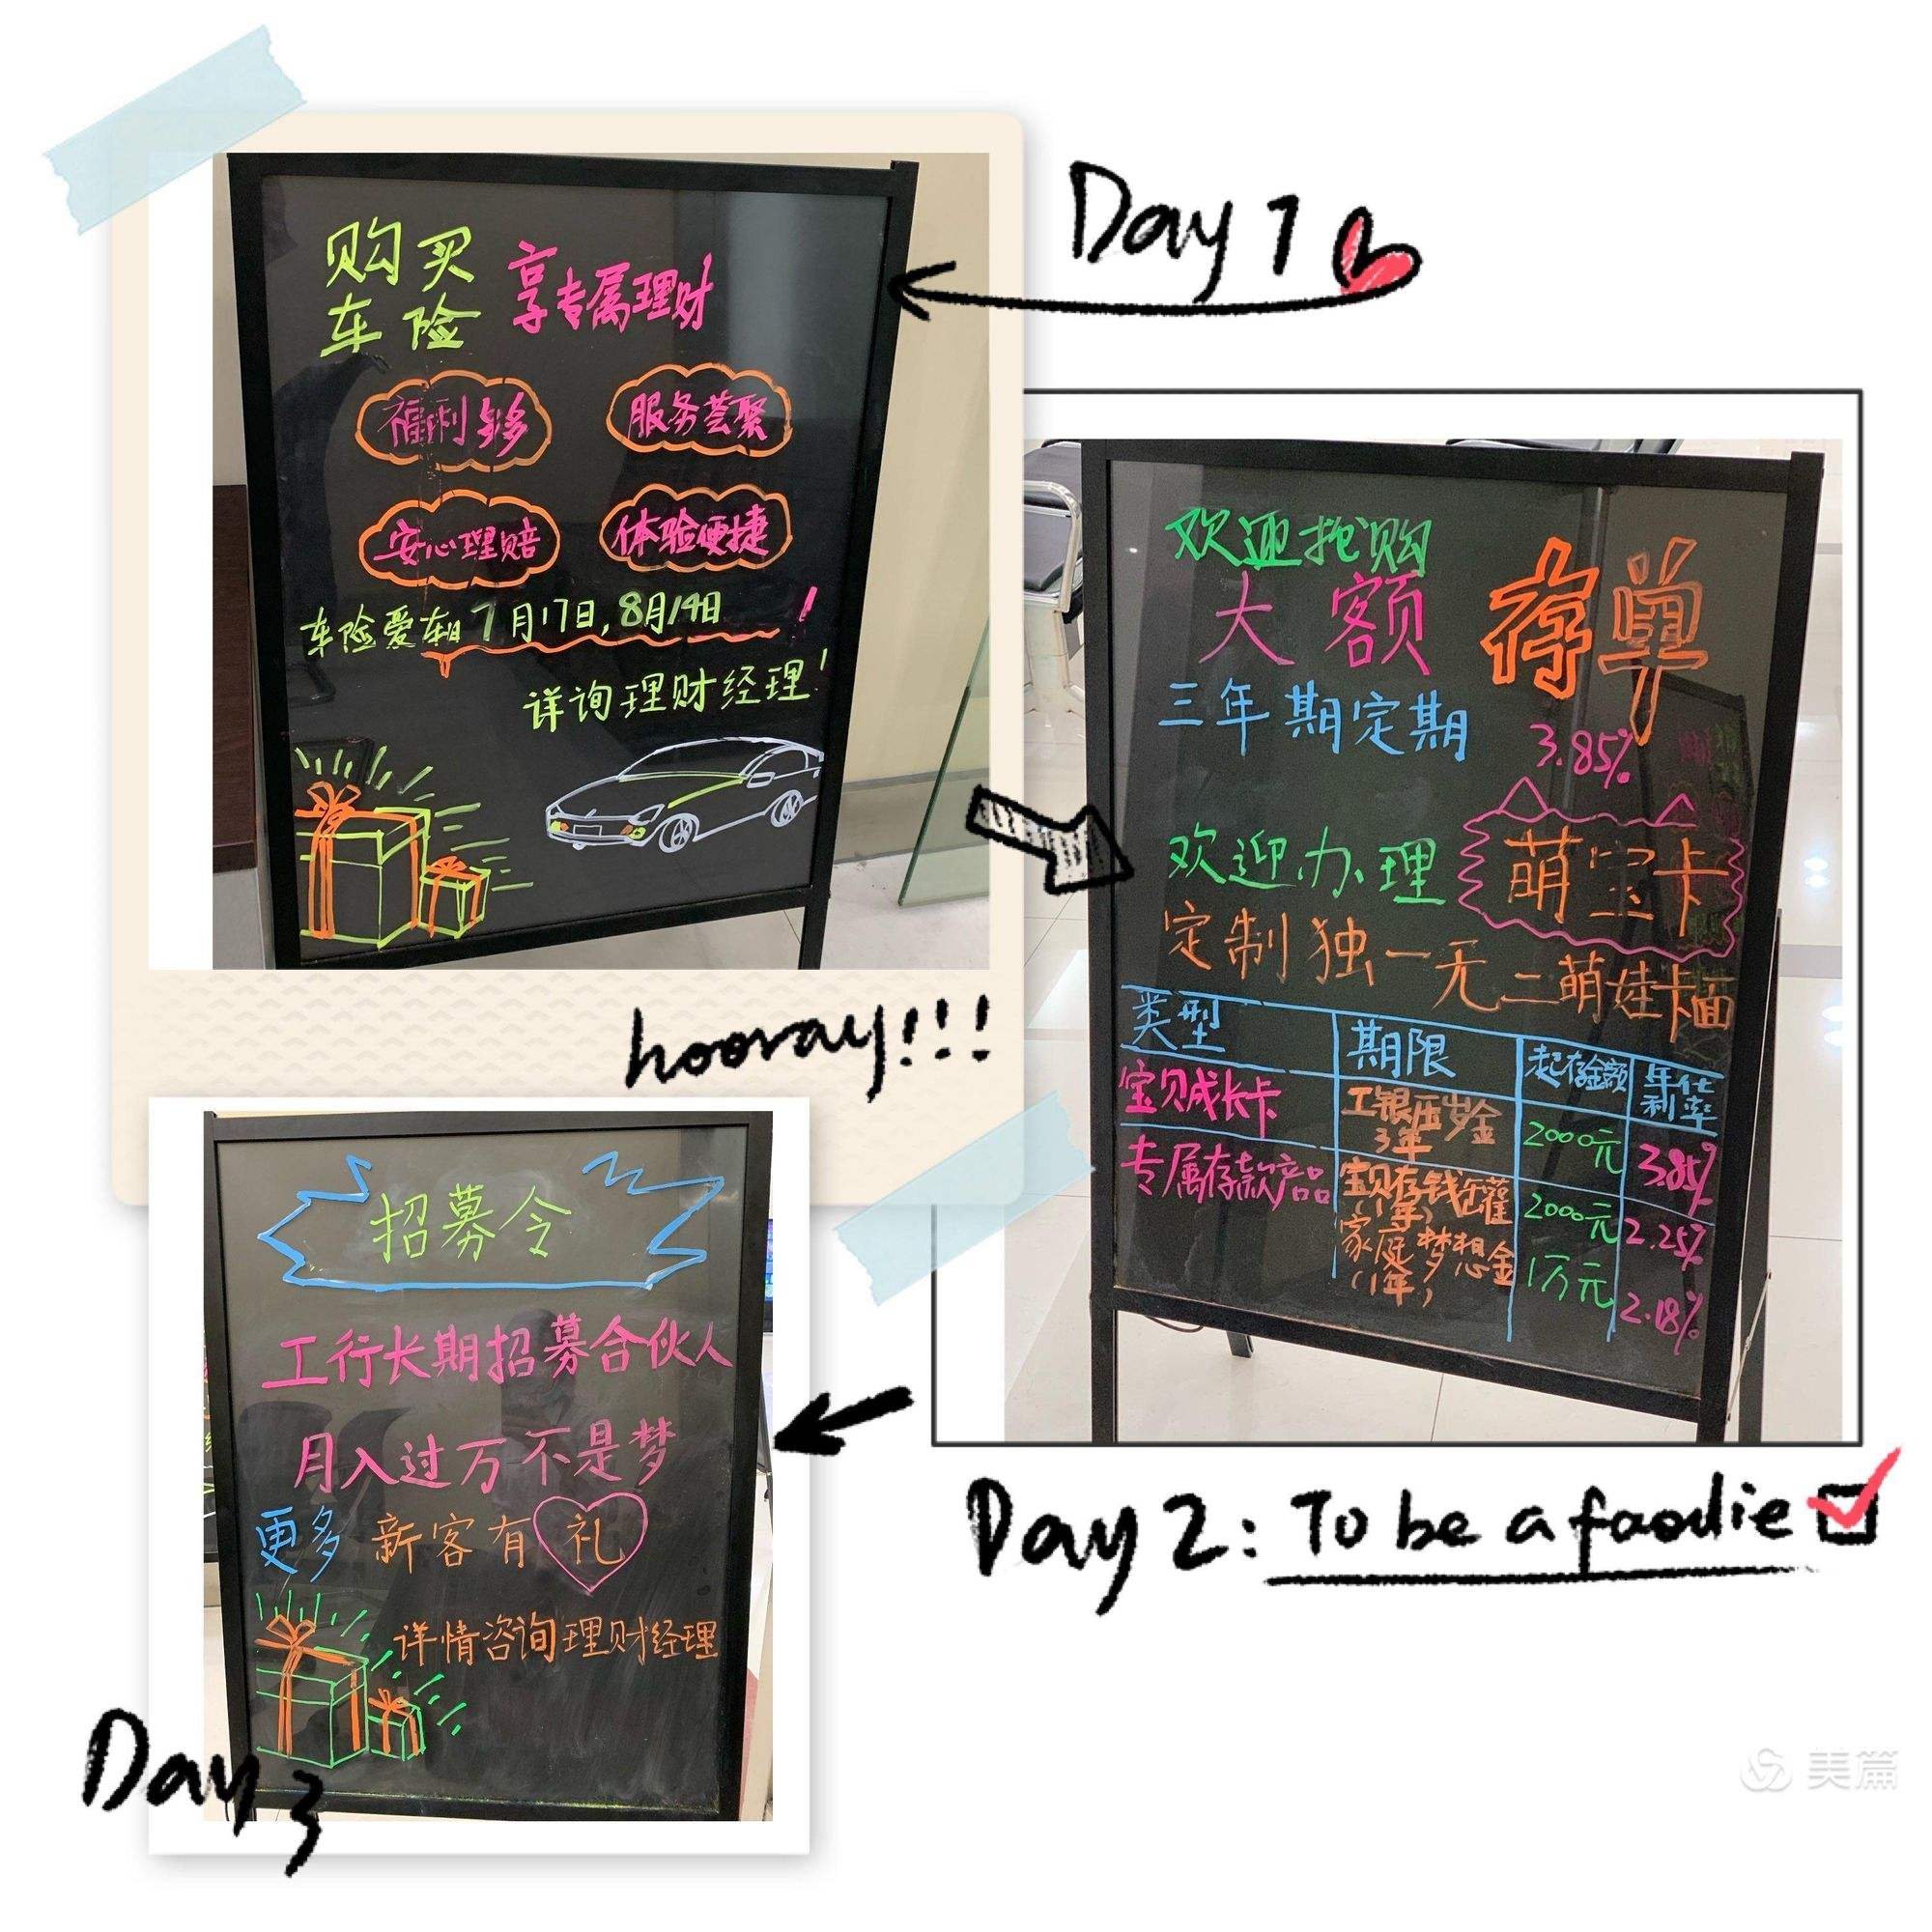 Day 1
购买 享专属理财
车险
福利多多
服务荟聚
安心理赔
体验便捷
车险爱车日 7月17日,8月14日!
详询理财经理!
hooray!!!
欢迎抢购
大额 存单
三年期定期 3.85%
欢迎办理 萌宝卡
定制独一无二萌娃卡面
类型 期限 起存金额 年化利率
宝贝成长卡 工银压岁金 3年 2000元 3.85%
专属存款产品 宝贝存钱罐 (1年) 2000元 2.25%
家庭梦想金 (1年) 1万元 2.18%
Day 2: To be a foodie
招募令
工行长期招募合伙人
月入过万不是梦
更多 新客有礼
详情咨询理财经理
Day 3
美篇